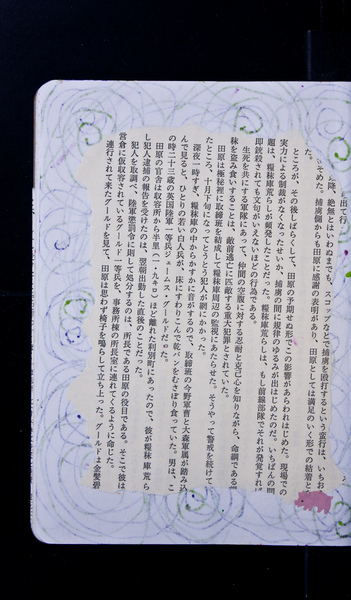 出て行
降、絶無とはいわぬまでも、スコップなどで捕虜を殴打するという蛮行は、いちお
そめた。捕虜側からも田原に感謝の表明があり、田原としては満足のいく形での結着と
た。
ところが、その後しばらくして、田原の予期せぬ形でこの影響があらわれはじめた。現場での
実力による制裁がなくなったせいか、捕虜の間に規律のゆるみが出はじめたのだ。いちばんの問
題は、糧秣庫荒らしが頻発したことだった。糧秣庫荒らしは、もし前線部隊でそれが発覚すれば
即銃殺されても文句がいえないほどの行為である。
生死を共にする軍隊にあって、仲間の空腹に対する忍耐と克己心を知りながら、命綱である糧
秣を盗み食いすることは、敵前逃亡に匹敵する重大犯罪とされていた。
田原は極秘裡に取締班を結成して糧秣庫周辺の監視にあたらせた。そうやって警戒を続けて
たところ、十月下旬になってとうとう犯人が網にかかった。
深夜一時すぎ、糧秣庫の中からかすかに音がするので、取締班の今野軍曹と大森軍属が踏み込
んで見ると、ひとりの若い白人兵が、床にすわりこんで乾パンをむさぼり食っていた。男は、こ
の時二十三歳の英国陸軍一等兵ジェームス・グールドだった。
田原の官舎は収容所から半里（一・九キロ）ほど離れた利別町にあったので、彼が糧秣庫荒ら
し犯人逮捕の報告を受けたのは、翌朝出勤した直後のことだった。
犯人を取調べ、陸軍懲罰令に則して処分するのは、所長である田原の役目である。そこで彼は
営倉に仮収容されているグールド一等兵を、事務所棟の所長室に連れてくるように命じた。
連行されて来たグールドを見て、田原は思わず椅子を鳴らして立ち上った。グールドは金髪碧